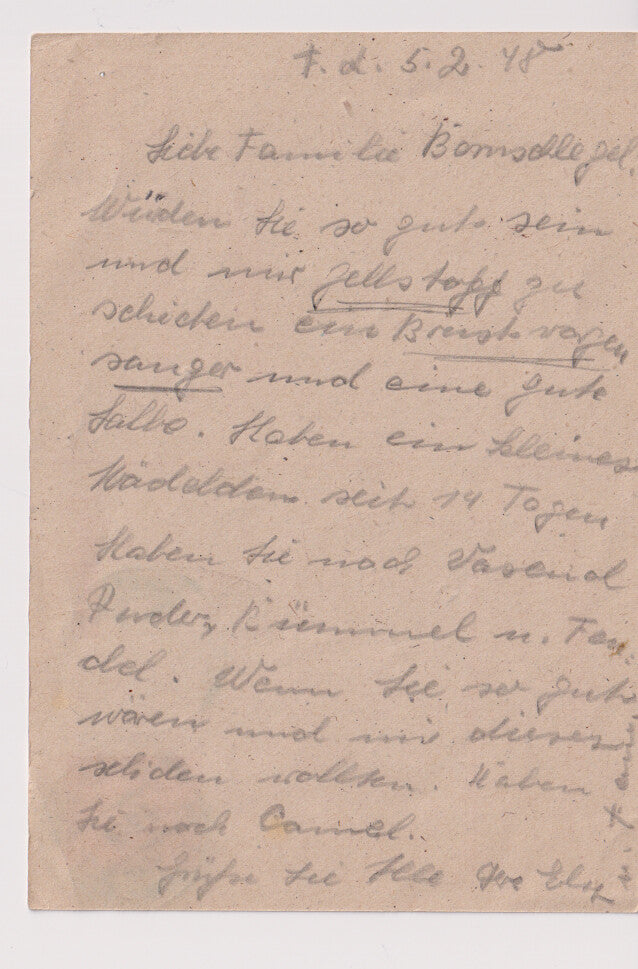 d. 5.2.48
Liebe Familie Bornschlegel,
Würden Sie so gut sein
und mir Zellstoff zu
schicken ein Brustwagen
sauger und eine gute
Salbe. Haben ein kleines
Mädelchen seit 14 Tagen
Haben Sie noch Vasenol
Puder, Kümmel u. Fen-
chel. Wenn Sie so gut
wären und mir dieses
schicken wollten. Haben
Sie noch Camel.
Grüße Sie Alle